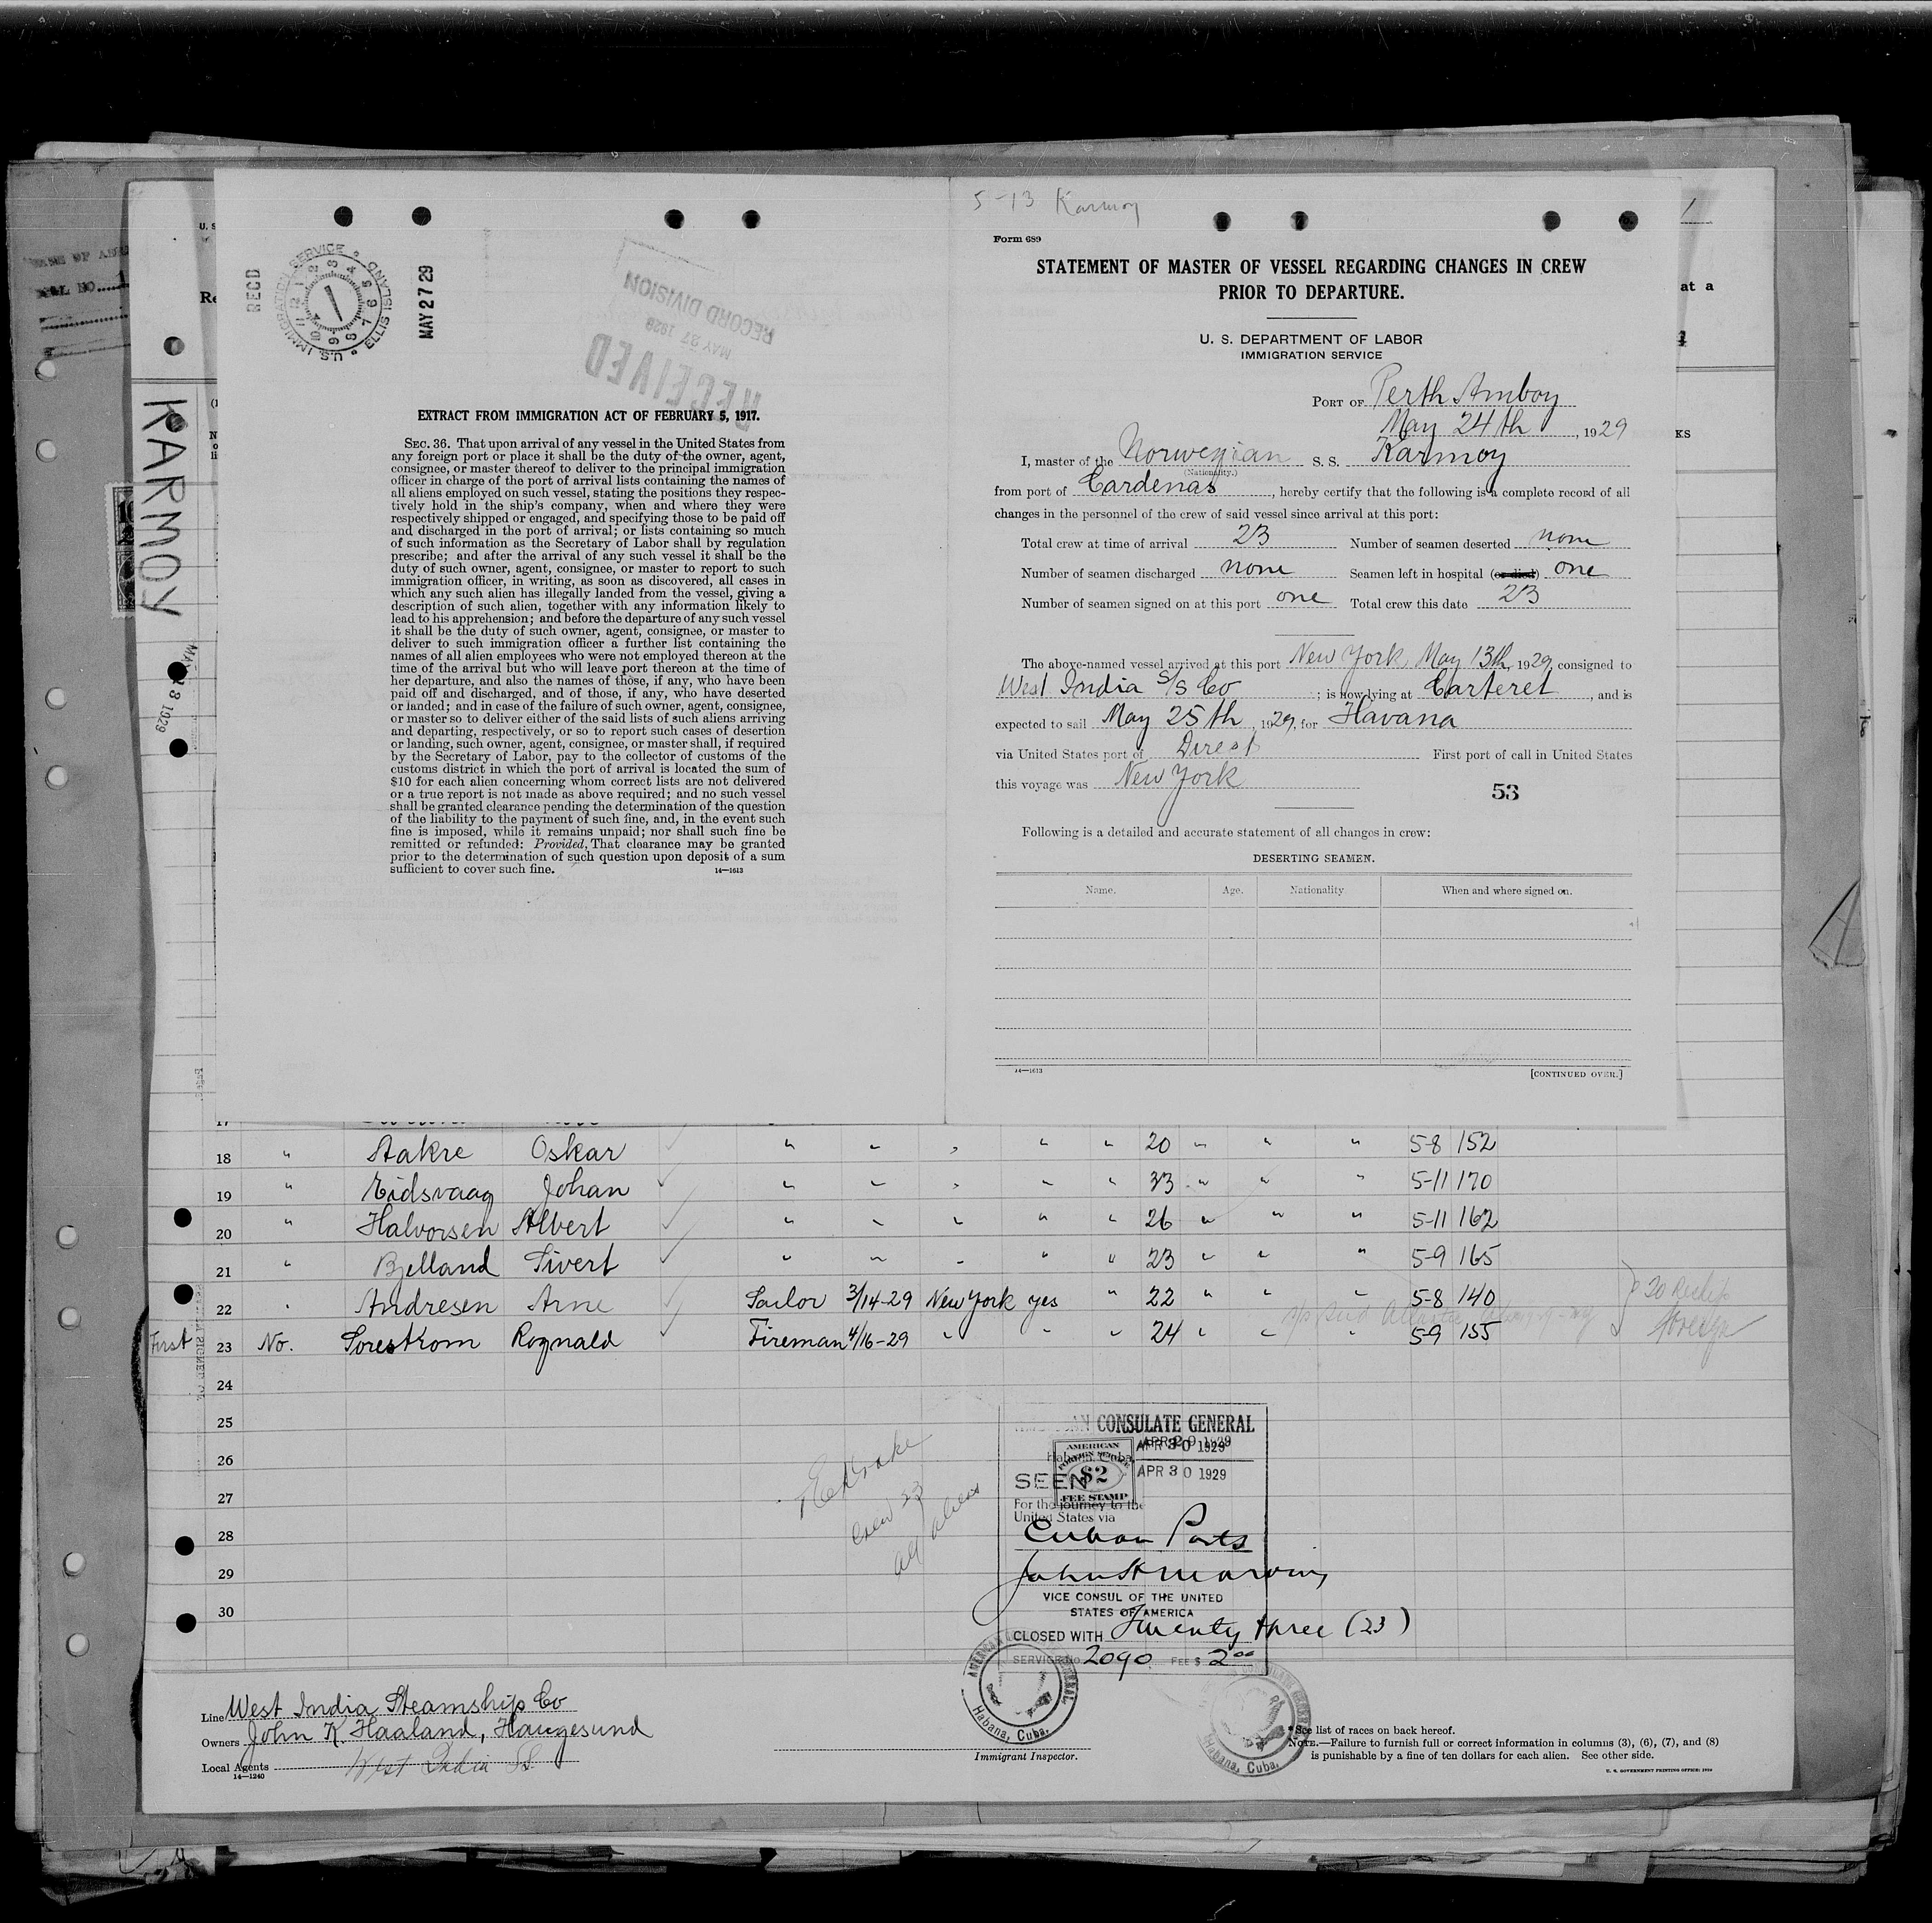 5-13 Karmoy
Form 689
STATEMENT OF MASTER OF VESSEL REGARDING CHANGES IN CREW
PRIOR TO DEPARTURE.
U. S. DEPARTMENT OF LABOR
IMMIGRATION SERVICE
PORT OF Perth Amboy
May 24th, 1929
I, master of the Norwegian S. S. Karmoy
(Nationality.)
from port of Cardenas, hereby certify that the following is a complete record of all
changes in the personnel of the crew of said vessel since arrival at this port:
Total crew at time of arrival 23 Number of seamen deserted none
Number of seamen discharged none Seamen left in hospital (or died) one
Number of seamen signed on at this port one Total crew this date 23
The above-named vessel arrived at this port New York, May 13th, 1929, consigned to
West India S/S Co; is now lying at Carteret, and is
expected to sail May 25th, 1929, for Havana
via United States port of Direct First port of call in United States
this voyage was New York
53
Following is a detailed and accurate statement of all changes in crew:
DESERTING SEAMEN.
Name. Age. Nationality When and where signed on.
14—1613 [CONTINUED OVER.]
RECD
U.S. IMMIGRATION SERVICE ELLIS ISLAND
MAY 27 29
RECEIVED
MAY 27 1929
RECORD DIVISION
EXTRACT FROM IMMIGRATION ACT OF FEBRUARY 5, 1917.
SEC. 36. That upon arrival of any vessel in the United States from
any foreign port or place it shall be the duty of the owner, agent,
consignee, or master thereof to deliver to the principal immigration
officer in charge of the port of arrival lists containing the names of
all aliens employed on such vessel, stating the positions they respec-
tively hold in the ship's company, when and where they were
respectively shipped or engaged, and specifying those to be paid off
and discharged in the port of arrival; or lists containing so much
of such information as the Secretary of Labor shall by regulation
prescribe; and after the arrival of any such vessel it shall be the
duty of such owner, agent, consignee, or master to report to such
immigration officer, in writing, as soon as discovered, all cases in
which any such alien has illegally landed from the vessel, giving a
description of such alien, together with any information likely to
lead to his apprehension; and before the departure of any such vessel
it shall be the duty of such owner, agent, consignee, or master to
deliver to such immigration officer a further list containing the
names of all alien employees who were not employed thereon at the
time of the arrival but who will leave port thereon at the time of
her departure, and also the names of those, if any, who have been
paid off and discharged, and of those, if any, who have deserted
or landed; and in case of the failure of such owner, agent, consignee,
or master so to deliver either of the said lists of such aliens arriving
and departing, respectively, or so to report such cases of desertion
or landing, such owner, agent, consignee, or master shall, if required
by the Secretary of Labor, pay to the collector of customs of the
customs district in which the port of arrival is located the sum of
$10 for each alien concerning whom correct lists are not delivered
or a true report is not made as above required; and no such vessel
shall be granted clearance pending the determination of the question
of the liability to the payment of such fine, and, in the event such
fine is imposed, while it remains unpaid; nor shall such fine be
remitted or refunded: Provided, That clearance may be granted
prior to the determination of such question upon deposit of a sum
sufficient to cover such fine. 14—1613
KARMOY
at a
18 " Aakre Oskar " " " " " 20 " " " 5-8 152
19 " Eidsvaag Johan " " " " " 33 " " " 5-11 170
20 " Halvorsen Albert " " " " " 26 " " " 5-11 162
21 " Bjelland Sivert " " " " " 23 " " " 5-9 165
22 " Andresen Arne Sailor 3/14-29 New York yes " 22 " " " 5-8 140
First 23 No. Sorestrom Rognald Fireman 4/16-29 " " " 24 " " " 5-9 155
24
25
26
27
28
29
30
Crew 23
all aliens
CONSULATE GENERAL
Habana, Cuba
APR 30 1929
APR 30 1929
AMERICAN
FOREIGN SERVICE
$2
FEE STAMP
SEEN
For the journey to the
United States via
Cuban Ports
VICE CONSUL OF THE UNITED
STATES OF AMERICA
CLOSED WITH Twenty three (23)
SERVICE No. 2090 FEE $ 2.00
Habana, Cuba.
Habana, Cuba.
Line West India Steamship Co
Owners John K. Haaland, Haugesund
Local Agents West India SS
14—1240
Immigrant Inspector.
*See list of races on back hereof.
NOTE.—Failure to furnish full or correct information in columns (3), (6), (7), and (8)
is punishable by a fine of ten dollars for each alien. See other side.
U. S. GOVERNMENT PRINTING OFFICE: 1928